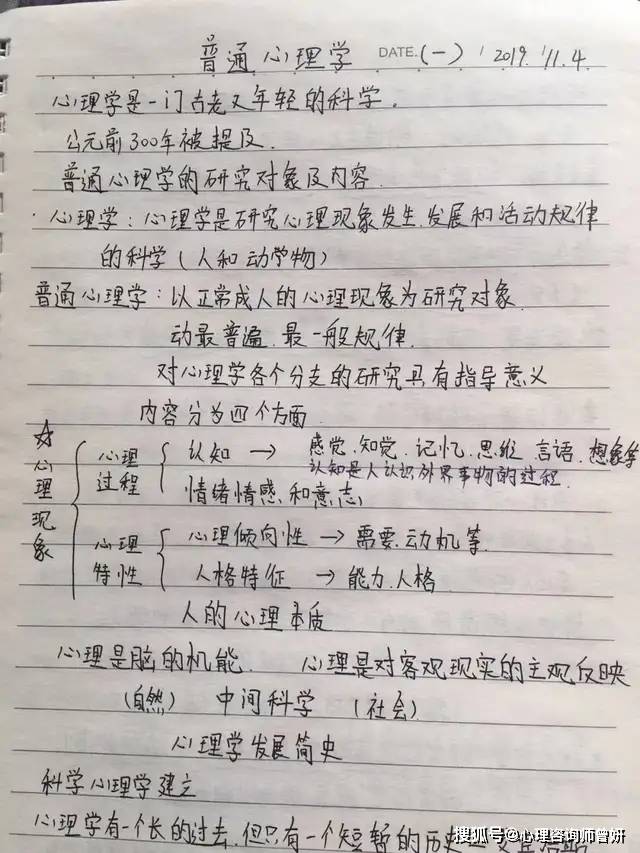 普通心理学 DATE.(一) / 2019. 11.4.
心理学是一门古老又年轻的科学。
公元前300年被提及.
普通心理学的研究对象及内容
·心理学:心理学是研究心理现象发生.发展和活动规律
的科学(人和动物)
普通心理学:以正常成人的心理现象为研究对象.
动最普遍.最一般规律.
对心理学各个分支的研究具有指导意义
内容分为四个方面
☆心理现象
心理过程
认知 → 感觉.知觉.记忆.思维.言语.想象等
认知是人认识外界事物的过程.
情绪情感和意志
心理特性
心理倾向性 → 需要.动机等.
人格特征 → 能力.人格.
人的心理本质
心理是脑的机能. 心理是对客观现实的主观反映
(自然) 中间科学 (社会)
心理学发展简史
科学心理学建立
心理学有一个长的过去,但只有一个短暂的历史
搜狐号@心理咨询师曾妍